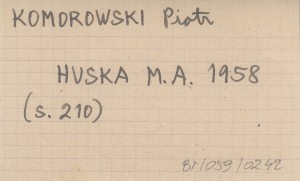 KOMOROWSKI Piotr
HUSKA M.A. 1958
(s. 210)
BI/059/0242